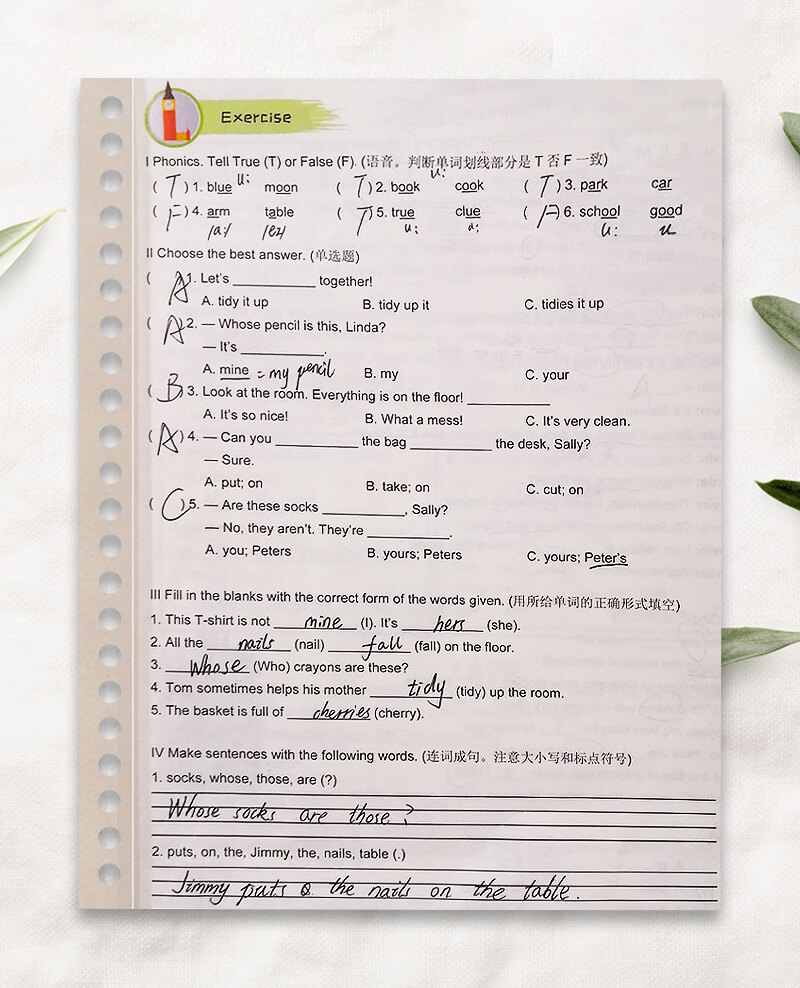 Exercise
I Phonics. Tell True (T) or False (F). (语音。判断单词划线部分是 T 否 F 一致)
( T ) 1. blue u: moon ( T ) 2. book u: cook ( T ) 3. park car
( F ) 4. arm table ( T ) 5. true clue ( F ) 6. school good
/a:/ /eɪ/ u: u: u: u
II Choose the best answer. (单选题)
( A ) 1. Let's ____________ together!
A. tidy it up B. tidy up it C. tidies it up
( A ) 2. — Whose pencil is this, Linda?
— It's ____________.
A. mine = my pencil B. my C. your
( B ) 3. Look at the room. Everything is on the floor! ____________
A. It's so nice! B. What a mess! C. It's very clean.
( A ) 4. — Can you ____________ the bag ____________ the desk, Sally?
— Sure.
A. put; on B. take; on C. cut; on
( C ) 5. — Are these socks ____________, Sally?
— No, they aren't. They're ____________.
A. you; Peters B. yours; Peters C. yours; Peter's
III Fill in the blanks with the correct form of the words given. (用所给单词的正确形式填空)
1. This T-shirt is not mine (I). It's hers (she).
2. All the nails (nail) fall (fall) on the floor.
3. Whose (Who) crayons are these?
4. Tom sometimes helps his mother tidy (tidy) up the room.
5. The basket is full of cherries (cherry).
IV Make sentences with the following words. (连词成句。注意大小写和标点符号)
1. socks, whose, those, are (?)
Whose socks are those ?
2. puts, on, the, Jimmy, the, nails, table (.)
Jimmy puts the nails on the table .